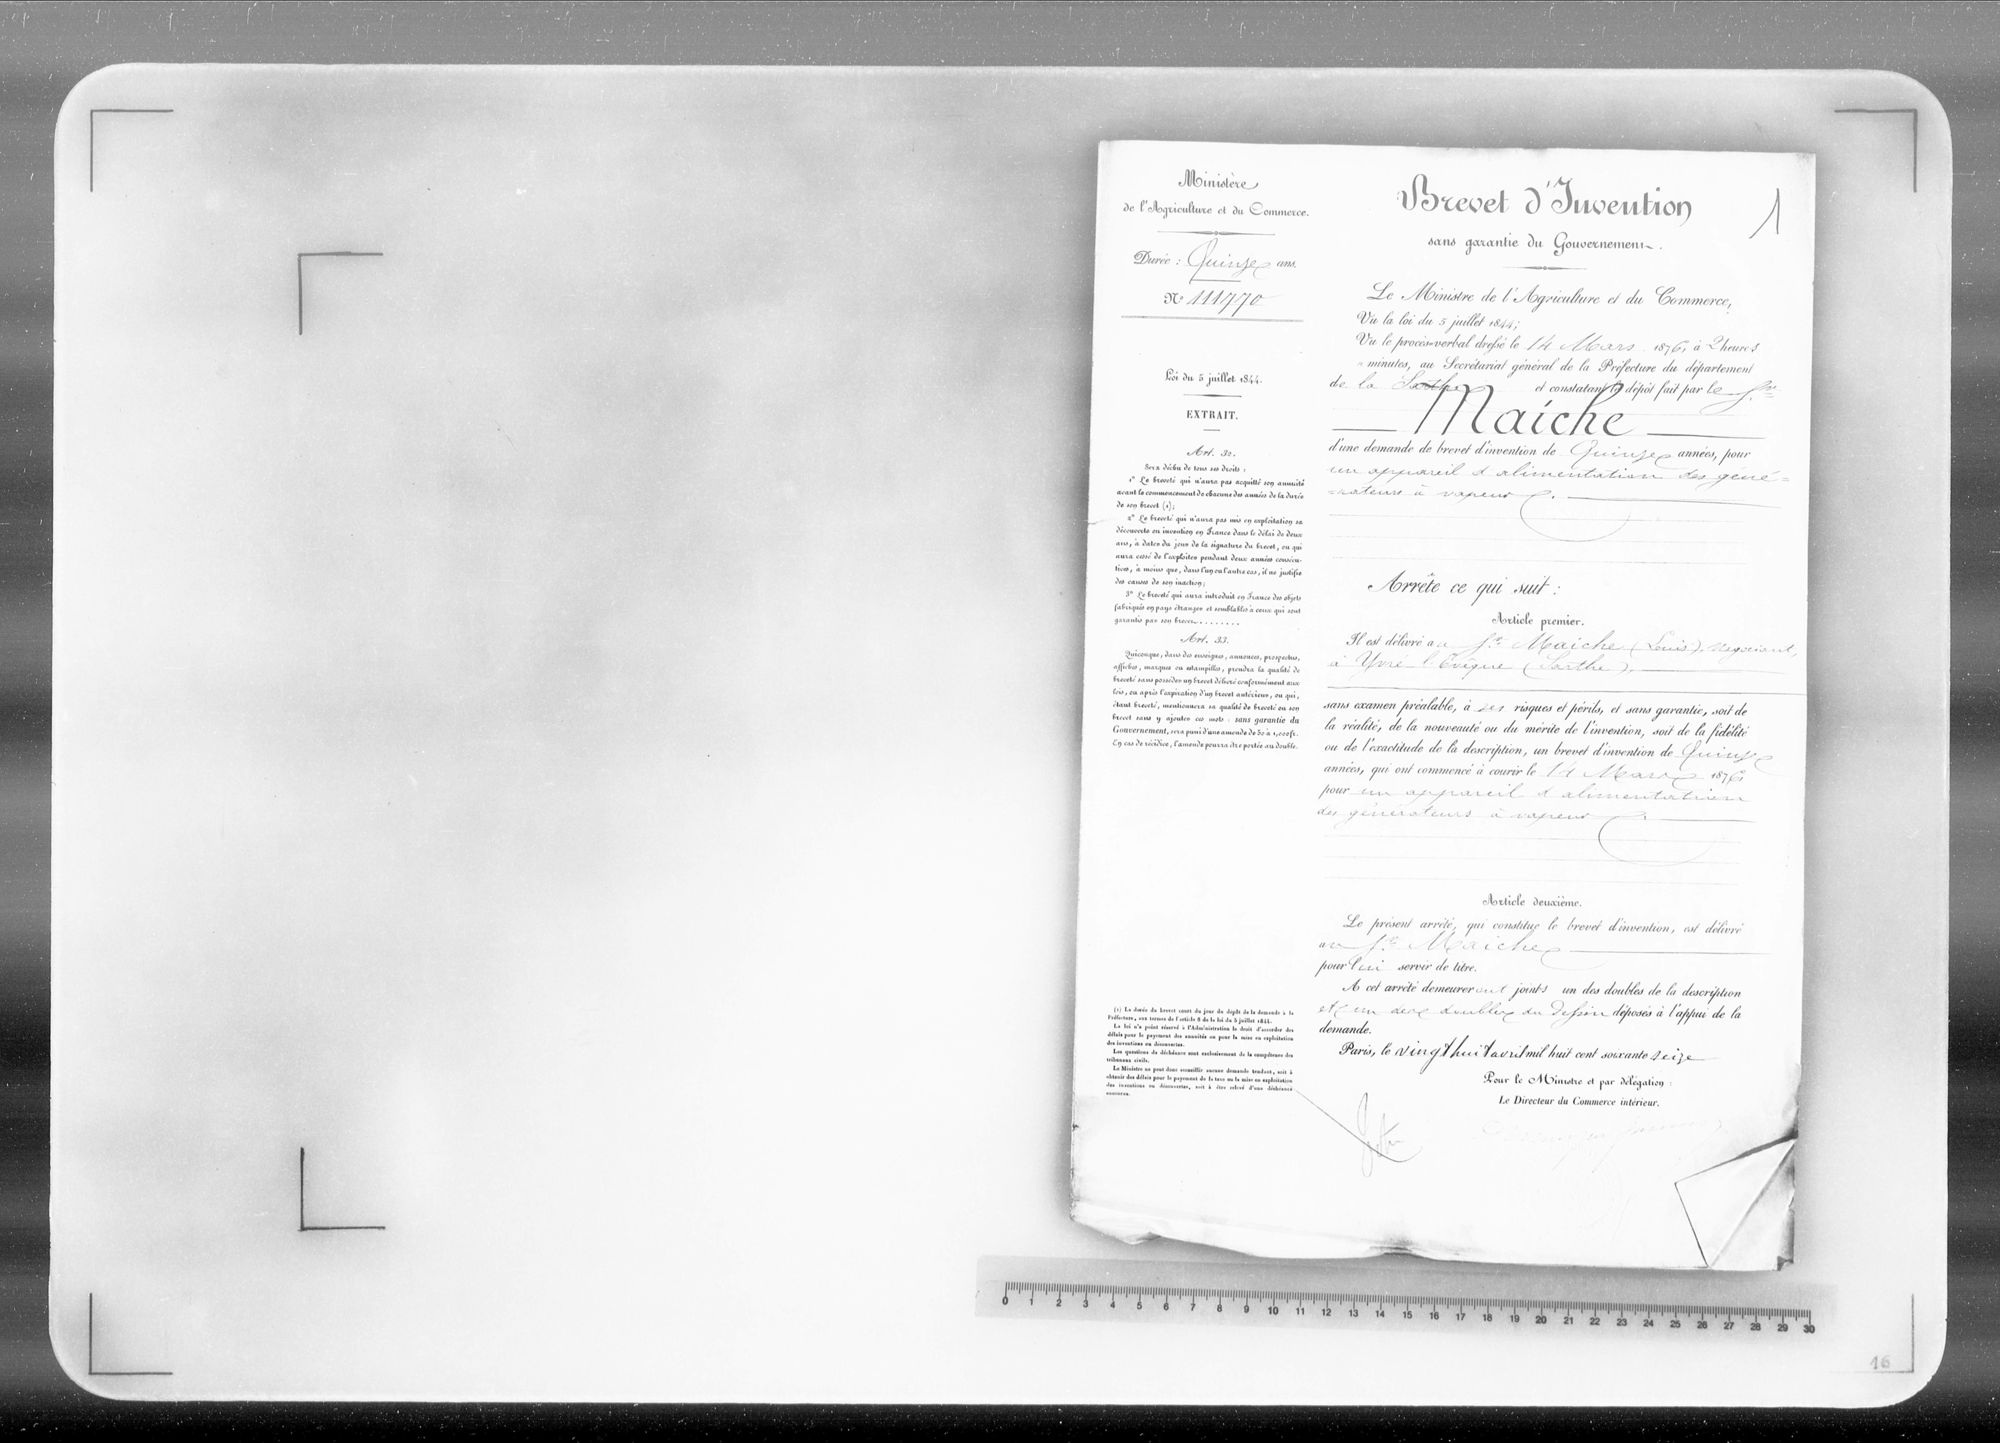 Ministère
de l'Agriculture et du Commerce.
Durée : Quinze ans.
N° 111770
Loi du 5 juillet 1844.
EXTRAIT.
Art. 32.
Sera déchu de tous ses droits :
1° Le breveté qui n'aura pas acquitté son annuité
avant le commencement de chacune des années de la durée
de son brevet (1);
2° Le breveté qui n'aura pas mis en exploitation sa
découverte ou invention en France dans le délai de deux
ans, à dater du jour de la signature du brevet, ou qui
aura cessé de l'exploiter pendant deux années consécu-
tives, à moins que, dans l'un ou l'autre cas, il ne justifie
des causes de son inaction;
3° Le breveté qui aura introduit en France des objets
fabriqués en pays étranger et semblables à ceux qui sont
garantis par son brevet.........
Art. 33.
Quiconque, dans des enseignes, annonces, prospectus,
affiches, marques ou estampilles, prendra la qualité de
breveté sans posséder un brevet délivré conformément aux
lois, ou après l'expiration d'un brevet antérieur, ou qui,
étant breveté, mentionnera sa qualité de breveté ou son
brevet sans y ajouter ces mots : sans garantie du
Gouvernement, sera puni d'une amende de 50 à 1,000 fr.
En cas de récidive, l'amende pourra être portée au double.
(1) La durée du brevet court du jour du dépôt de la demande à la
Préfecture, aux termes de l'article 8 de la loi du 5 juillet 1844.
La loi n'a point réservé à l'Administration le droit d'accorder des
délais pour le payement des annuités ou pour la mise en exploitation
des inventions ou découvertes.
Les questions de déchéance sont exclusivement de la compétence des
tribunaux civils.
Le Ministre ne peut donc accueillir aucune demande tendant, soit à
obtenir des délais pour le payement de la taxe ou la mise en exploitation
des inventions ou découvertes, soit à être relevé d'une déchéance
encourue.
Brevet d'Invention
1
sans garantie du Gouvernement.
Le Ministre de l'Agriculture et du Commerce,
Vu la loi du 5 juillet 1844;
Vu le procès-verbal dressé le 14 Mars 1876, à 2 heures
" minutes, au Secrétariat général de la Préfecture du département
de la Sarthe et constatant le dépôt fait par le Sr
Maiche
d'une demande de brevet d'invention de Quinze années, pour
un appareil d'alimentation des géné=
=rateurs à vapeur.
Arrête ce qui suit :
Article premier.
Il est délivré au Sr Maiche (Louis), négociant,
à Yvré l'Evêque (Sarthe),
sans examen préalable, à ses risques et périls, et sans garantie, soit de
la réalité, de la nouveauté ou du mérite de l'invention, soit de la fidélité
ou de l'exactitude de la description, un brevet d'invention de Quinze
années, qui ont commencé à courir le 14 Mars 1876
pour un appareil d'alimentation
des générateurs à vapeur.
Article deuxième.
Le présent arrêté, qui constitue le brevet d'invention, est délivré
au Sr Maiche
pour lui servir de titre.
A cet arrêté demeureront joints un des doubles de la description
et un des doubles du dessin déposés à l'appui de la
demande.
Paris, le vingt huit avril mil huit cent soixante seize
Pour le Ministre et par délégation :
Le Directeur du Commerce intérieur.
0 1 2 3 4 5 6 7 8 9 10 11 12 13 14 15 16 17 18 19 20 21 22 23 24 25 26 27 28 29 30
16